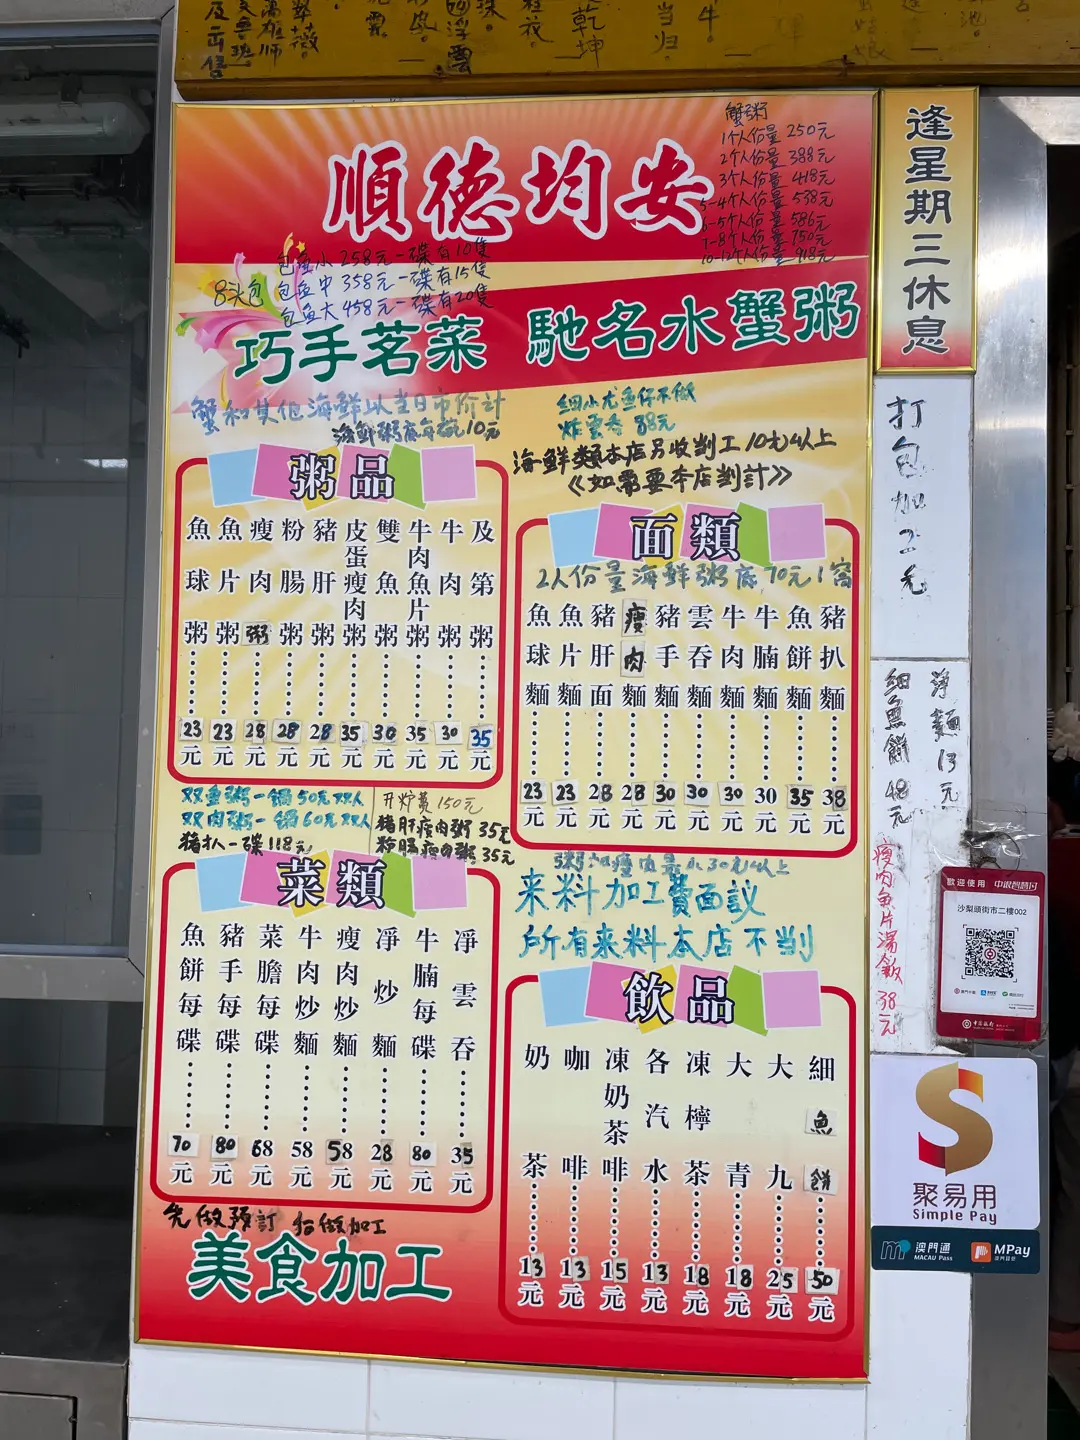 順德均安
蟹粥
1个人份量 250元
2个人份量 388元
3个人份量 418元
5-4个人份量 538元
6-5个人份量 586元
7-8个人份量 750元
10-12个人份量 918元
8头包
包鱼小 258元一碟有10隻
包鱼中 358元一碟有15隻
包鱼大 458元一碟有20隻
巧手茗菜 馳名水蟹粥
蟹和其他海鮮以当日市价计
海鮮粥底每窩10元
细小尤鱼仔不做
炸雲吞 88元
海鮮類本店另收劏工10元以上
《如需要本店劏計》
粥品
魚球粥 23元
魚片粥 23元
瘦肉粥 28元
粉腸粥 28元
豬肝粥 28元
皮蛋瘦肉粥 35元
雙魚粥 30元
牛肉魚片粥 35元
牛肉粥 30元
及第粥 35元
面類
2人份量海鮮粥底70元1窩
魚球麵 23元
魚片麵 23元
豬肝面 28元
瘦肉麵 28元
豬手麵 30元
雲吞麵 30元
牛肉麵 30元
牛腩麵 30元
魚餅麵 35元
豬扒麵 38元
双鱼粥一锅50元双人
双肉粥一锅60元双人
猪扒一碟118元
150元
猪肝瘦肉粥 35元
猪腸瘦肉粥 35元
菜類
魚餅每碟 70元
豬手每碟 80元
菜膽每碟 68元
牛肉炒麵 58元
瘦肉炒麵 58元
凈炒麵 28元
牛腩每碟 80元
凈雲吞 35元
30元以上
来料加工費面议
所有来料本店不劏
飲品
奶茶 13元
咖啡 13元
凍奶茶啡 15元
各汽水 13元
凍檸茶 18元
大青 18元
大九 25元
細魚餅 50元
先做預訂
美食加工
逢星期三休息
打包加2元
淨麵13元
细魚餅 48元
瘦肉魚片湯飯 38元
歡迎使用 中銀智慧付
沙梨頭街市二樓002
聚易用
Simple Pay
澳門通
MACAU Pass
MPay